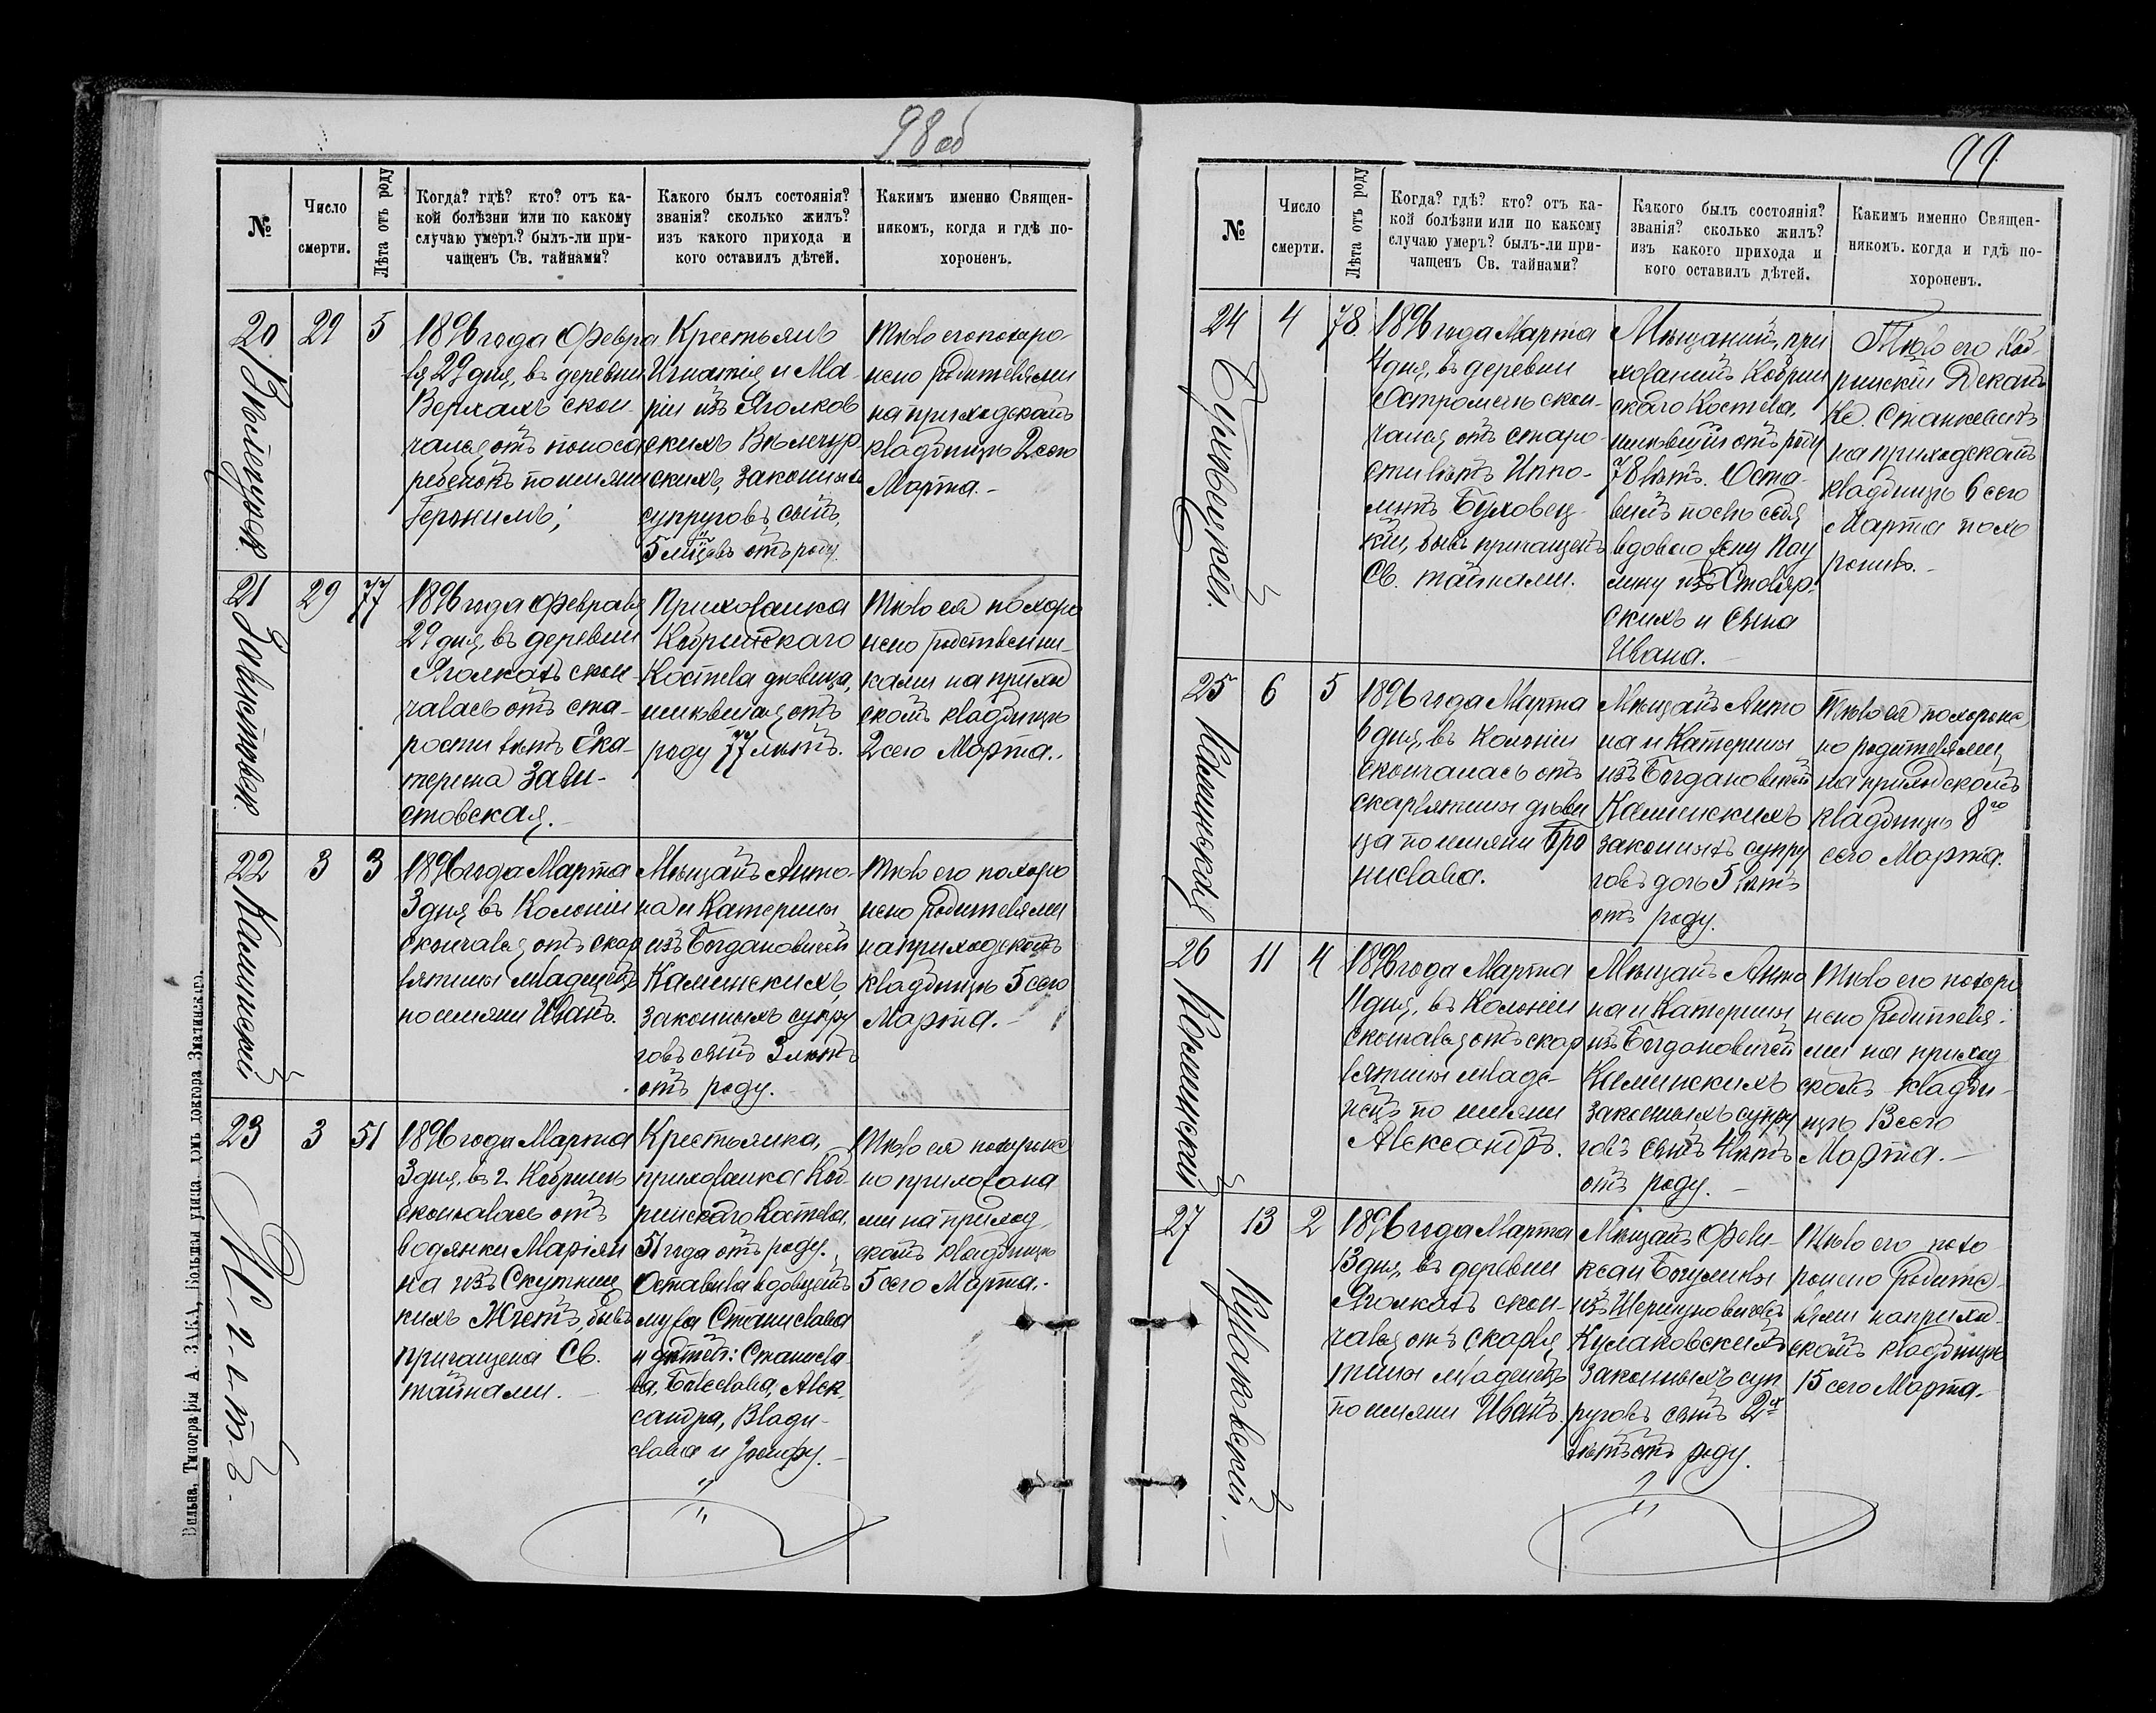 98 об
№
Число
смерти.
Лѣта отъ роду
Когда? гдѣ? кто? отъ ка-
кой болѣзни или по какому
случаю умеръ? былъ-ли при-
чащенъ Св. тайнами?
Какого былъ состоянія?
званія? сколько жилъ?
изъ какого прихода и
кого оставилъ дѣтей.
Какимъ именно Священ-
никомъ, когда и гдѣ по-
хороненъ.
20
29
5
1896 года Февра
ля 29 дня, въ деревни
Верхахъ скон-
чался отъ поноса
ребенокъ по имяни
Геронимъ;
Крестьянъ
Игнатія и Ма-
ріи изъ Яголков
скихъ
скихъ, законныхъ
супруговъ, сынъ,
5 мѣс. отъ роду.
Тѣло его похоро-
нено родителями
на приходскомъ
кладбищѣ 2 сего
Марта.-
21
Завистовск.
29
77
1896 года Февраля
29 дня, въ деревни
Яголкахъ скон-
чалась отъ ста-
рости лѣтъ Ека-
терина Зави-
стовская.-
Прихожанка
Кобринскаго
Костела дѣвица,
имѣвшая отъ
роду 77 лѣтъ.
Тѣло ея похоро
нено родственни-
ками на приход
скомъ кладбищѣ
2 сего Марта.-
22
Каминскій
3
3
1896 года Марта
3 дня въ Колоніи
скончался отъ скар
лятины младенецъ
по имяни Иванъ.
Мѣщанъ Анто-
на и Катерины
изъ Богдановичей
Каминскихъ,
законныхъ супру
говъ сынъ 3 лѣтъ
отъ роду.
Тѣло его похоро
нено родителями
на приходскомъ
кладбищѣ 5 сего
Марта.-
23
Жгетъ.
3
51
1896 года Марта
3 дня, въ г. Кобринѣ
скончалась отъ
водянки Маріян
на изъ Скутниц
кихъ Жгетъ, бывъ
причащена Св.
тайнами.-
Крестьянка,
прихожанка Коб-
ринскаго Костела,
51 года отъ роду.
Оставила вдовцемъ
мужа Станислава
и дѣтей: Станисла
ва, Болеслава, Алек
сандра, Влади-
слава и Іосифу.-
Тѣло ея похороне
но прихожана
ми на приход
скомъ кладбищѣ
5 сего Марта.-
Вильна, Типографія А. ЗАКА, Большая улица, домъ доктора
99.
№
Число
смерти.
Лѣта отъ роду
Когда? гдѣ? кто? отъ ка-
кой болѣзни или по какому
случаю умеръ? былъ-ли при-
чащенъ Св. тайнами?
Какого былъ состоянія?
званія? сколько жилъ?
изъ какого прихода и
кого оставилъ дѣтей.
Какимъ именно Священ-
никомъ. когда и гдѣ по-
хороненъ.
24
Буховецкій.
4
78
1896 года Марта
4 дня, въ деревни
Остромечь скон-
чался отъ старо-
сти лѣтъ Иппо-
литъ Буховец-
кій, бывъ причащенъ
Св. тайнами.
Мѣщанинъ, при
хожанинъ Кобрин
скаго Костела,
имѣвшій отъ роду
78 лѣтъ. Оста-
вилъ послѣ себя
вдовою жену Пау
лину изъ Столяр-
скихъ и сына
Ивана.-
Тѣло его Коб-
ринскій Деканъ
Кс. Станкевичъ
на приходскомъ
кладбищѣ 6 сего
Марта похо
ронилъ.-
25
Каминская
6
5
1896 года Марта
6 дня, въ Колоніи
скончалась отъ
скарлятины дѣви
ца по имяни Бро
нислава.
Мѣщанъ Анто
на и Катерины
изъ Богдановичей
Каминскихъ
законныхъ супру
говъ дочь 5 лѣтъ
отъ роду.
Тѣло ея похороне
но родителями,
на приходскомъ
кладбищѣ 8го
сего Марта.
26
Каминскій
11
4
1896 года Марта
11 дня, въ Колоніи
скончался отъ скар
лятины младе-
нецъ по имяни
Александръ.
Мѣщанъ Анто
на и Катерины
изъ Богдановичей
Каминскихъ
законныхъ супру
говъ сынъ 4 лѣтъ
отъ роду.-
Тѣло его похоро
нено родителя-
ми на приход
скомъ кладби-
щѣ 13 сего
Марта.-
27
Кулаковскій.-
13
2
1896 года Марта
13 дня, въ деревни
Яголкахъ скон-
чался отъ скарля
тины младенецъ
по имяни Иванъ.
Мѣщанъ Фели-
кса и Богумилы
изъ
Кулаковскихъ
законныхъ суп
руговъ сынъ 2хъ
лѣтъ отъ роду.
Тѣло его похо
ронено родите-
лями на приход-
скомъ кладбищѣ
15 сего Марта.-